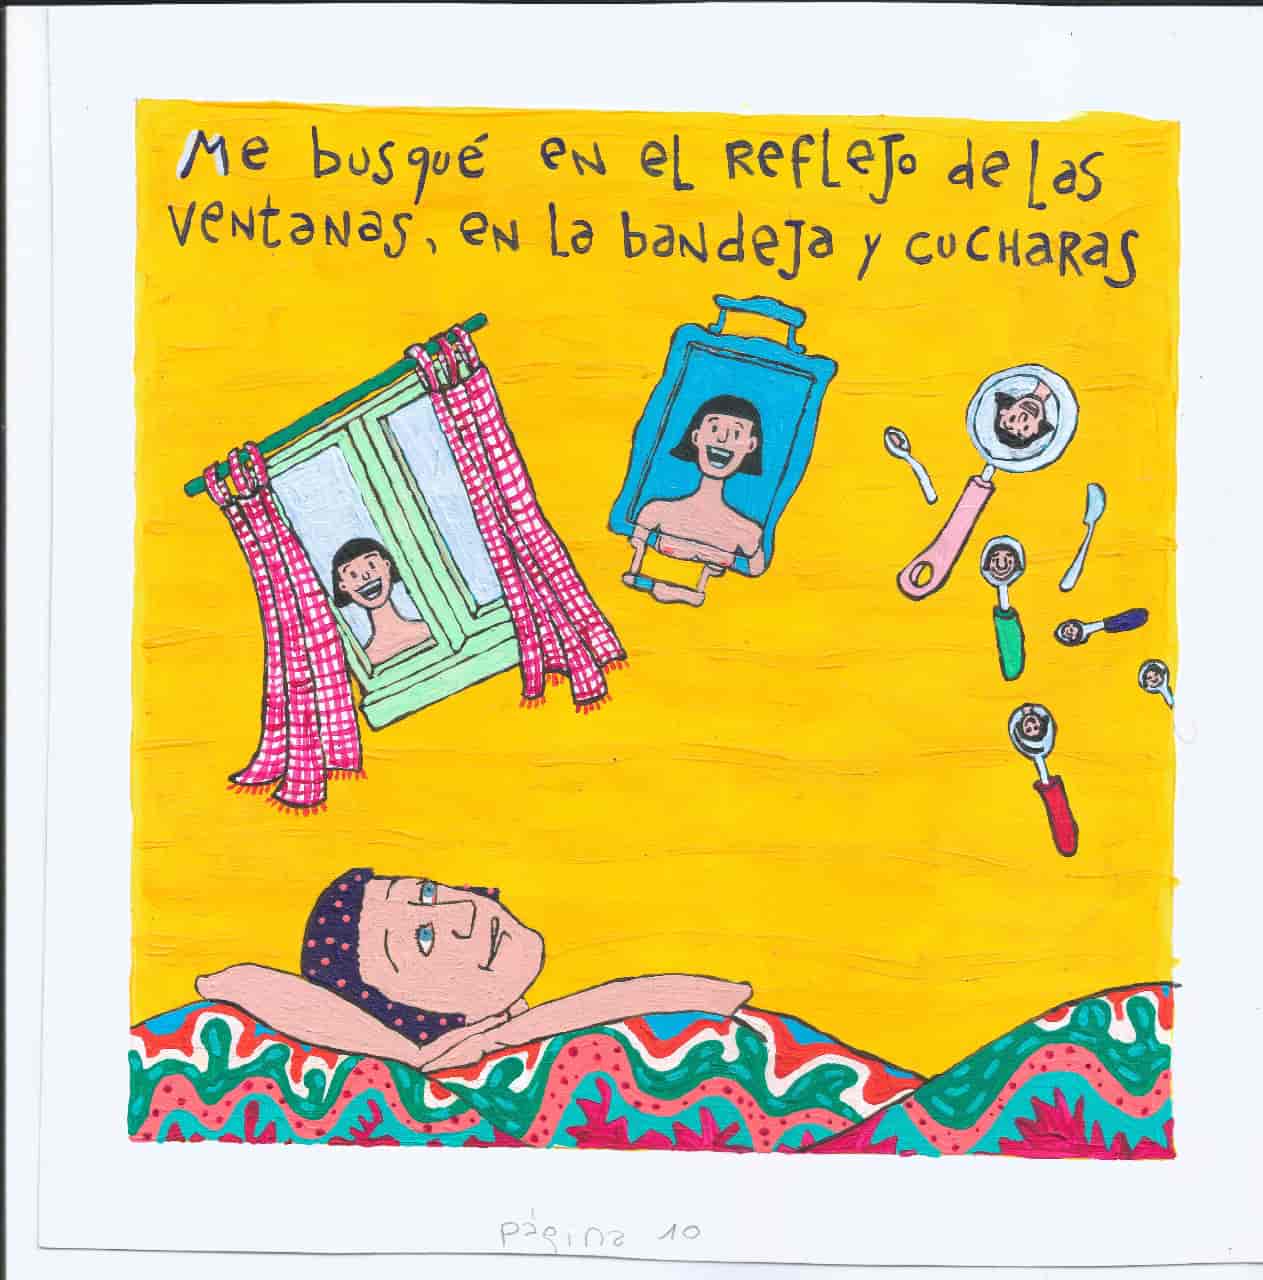 Me busqué en el reflejo de las
ventanas, en la bandeja y cucharas
página 10